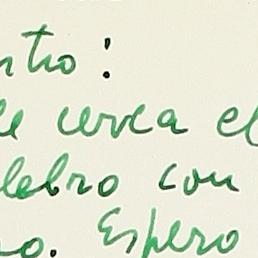 ntro:
de cerca el
lebro con
no. Espero